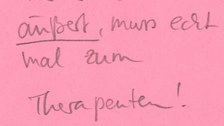 äußert, muss echt
mal zum
Therapeuten!